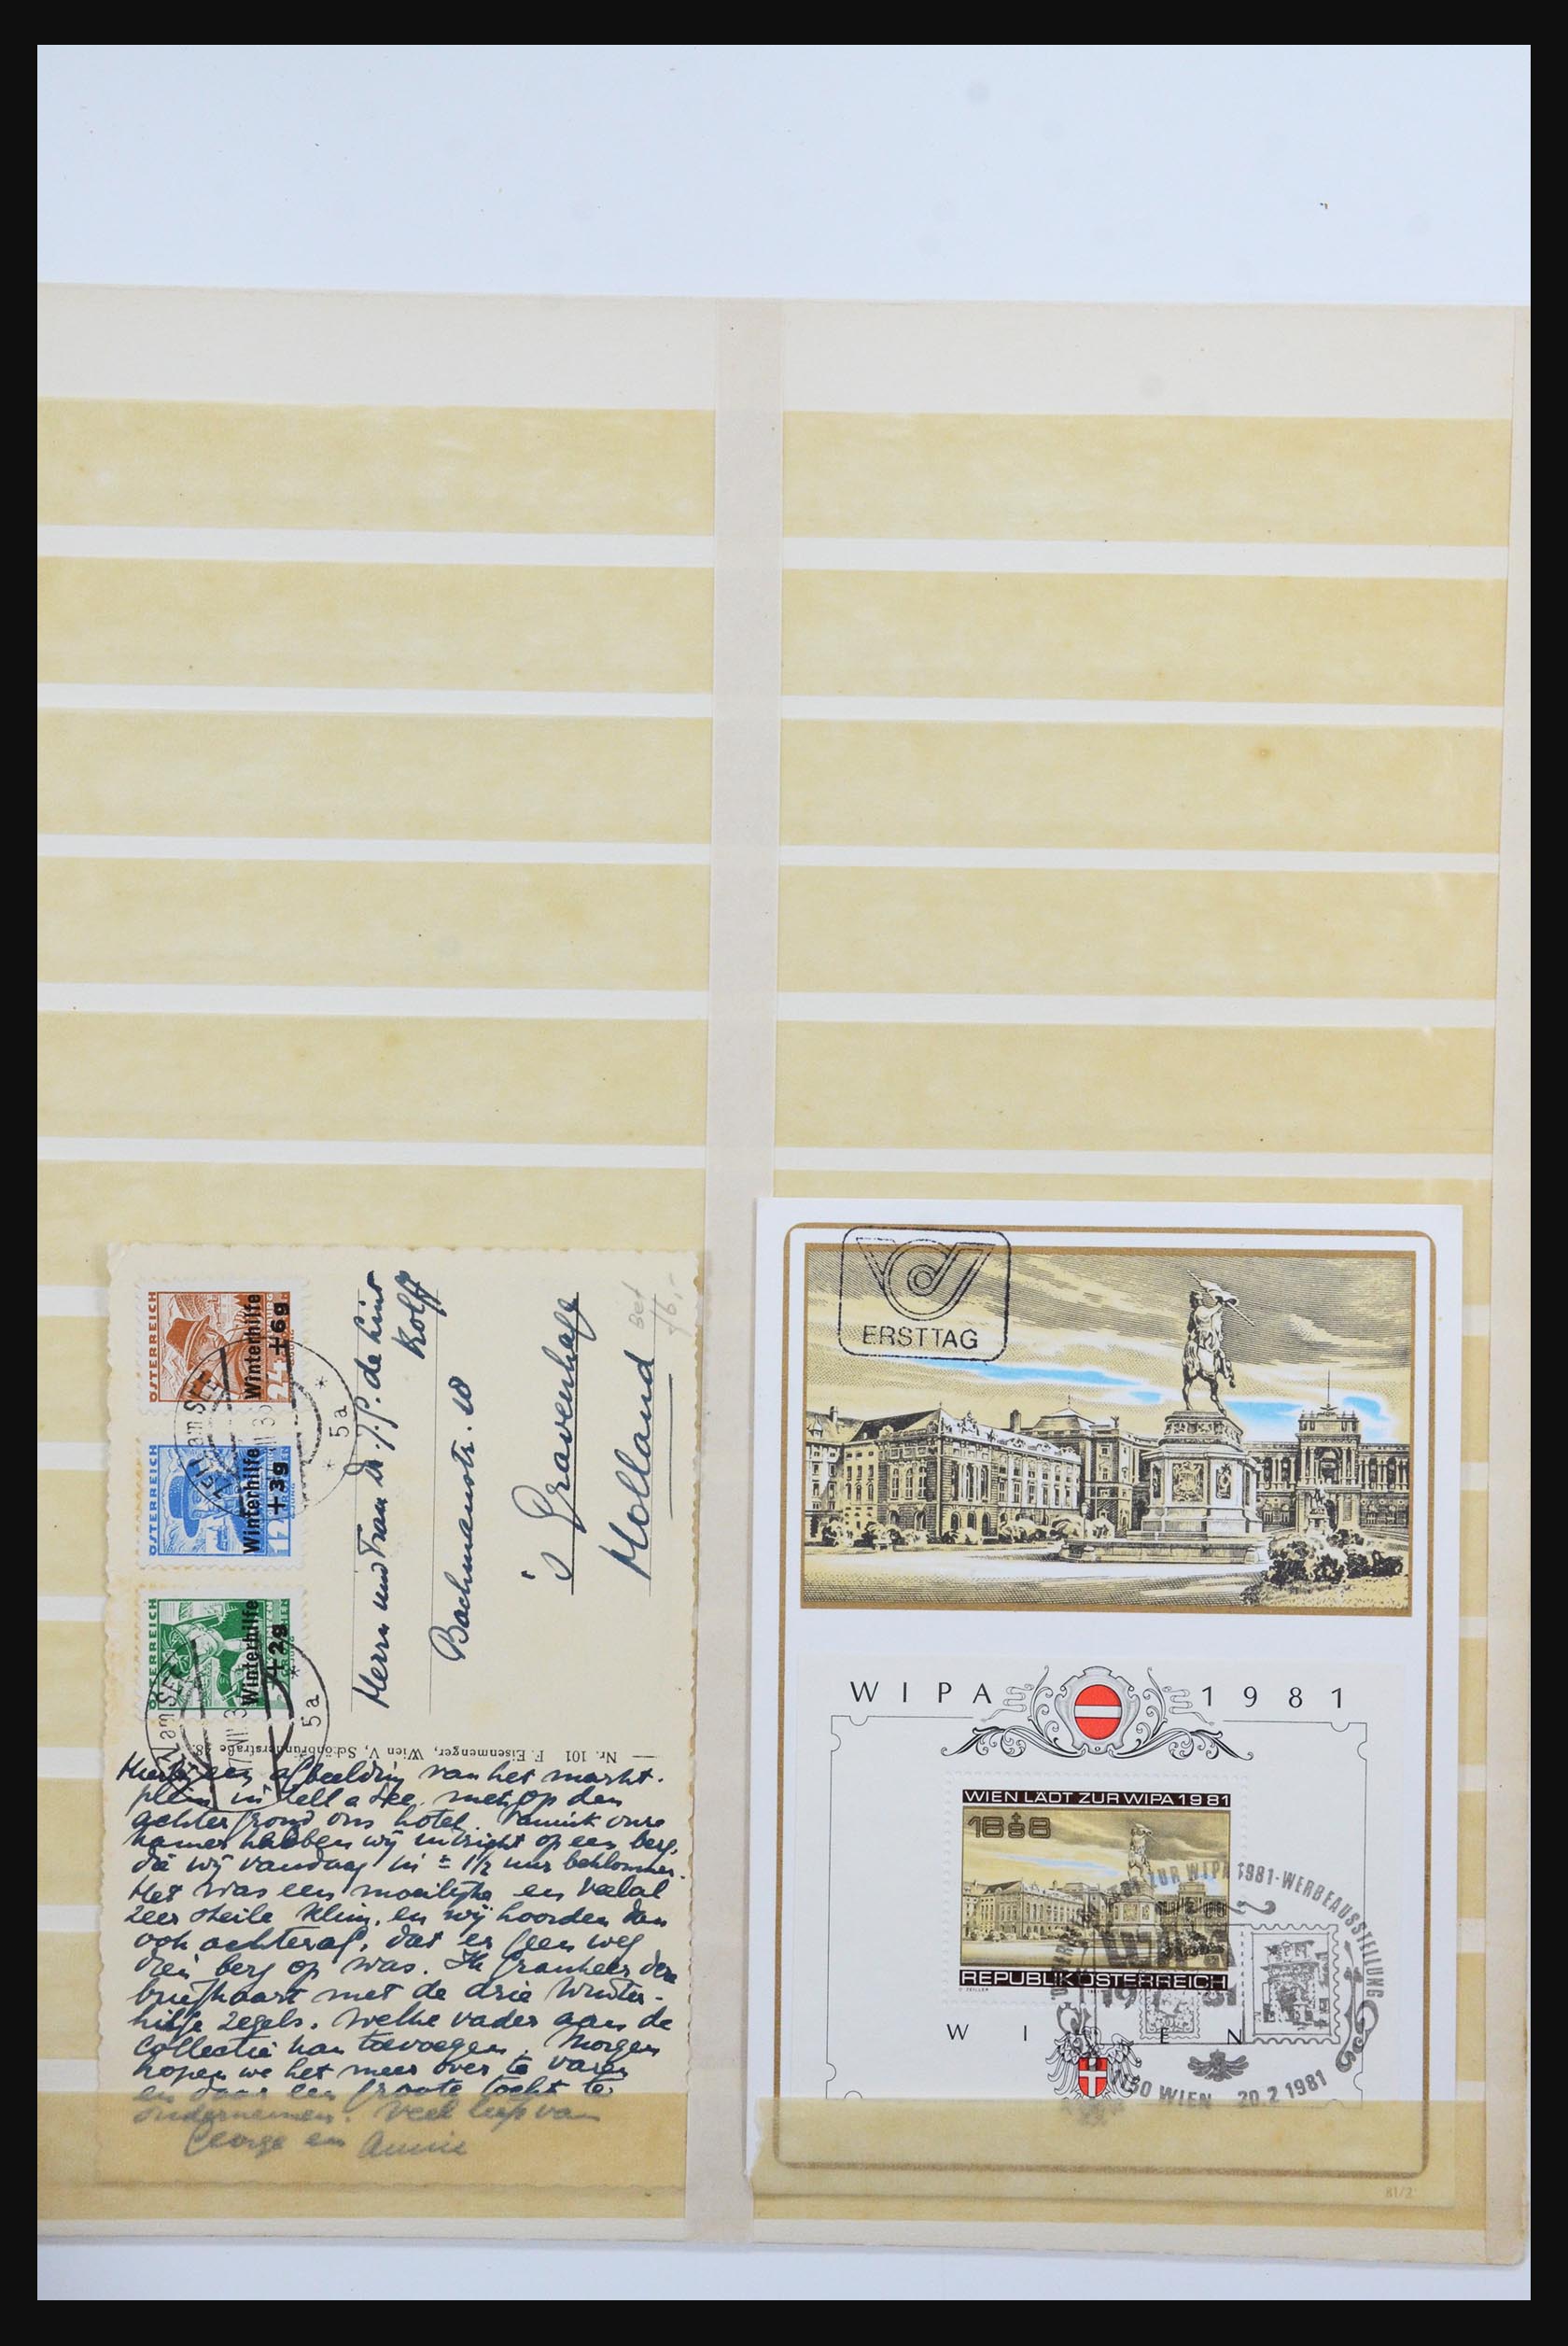 ÖSTERREICH
Winterhilfe
24 +6g
ÖSTERREICH
Winterhilfe
12 +3g
ÖSTERREICH
Winterhilfe
+2g
5a
5a
Herrn und Frau Dr. J. P. de Lint
Kolff
Bachmanstr. 10
's Gravenhage
Holland
Nr. 101 F. Eisenmenger, Wien V, Schönbrunnerstraße 38.
Hierbij een afbeelding van het markt-
plein in Zell a See, met op den
achtergrond ons hotel. Vanuit onze
kamer hebben wij uitzicht op een berg,
die wij vandaag in ± 1½ uur beklommen.
Het was een moeilijke en veelal
zeer steile klim, en wij hoorden dan
ook achteraf, dat er geen weg
dien berg op was. Ik frankeer deze
briefkaart met de drie Winter-
hilfe zegels, welke vader aan de
collectie kan toevoegen. Morgen
hopen we het meer over te varen
en daar een groote tocht te
ondernemen. Veel liefs van
George en Annie
ERSTTAG
WIPA 1981
WIEN LÄDT ZUR WIPA 1981
16+8
REPUBLIK ÖSTERREICH
O. ZEILLER
ZUR WIPA 1981-WERBEAUSSTELLUNG
WIEN
1150 WIEN 20.2.1981
81/2